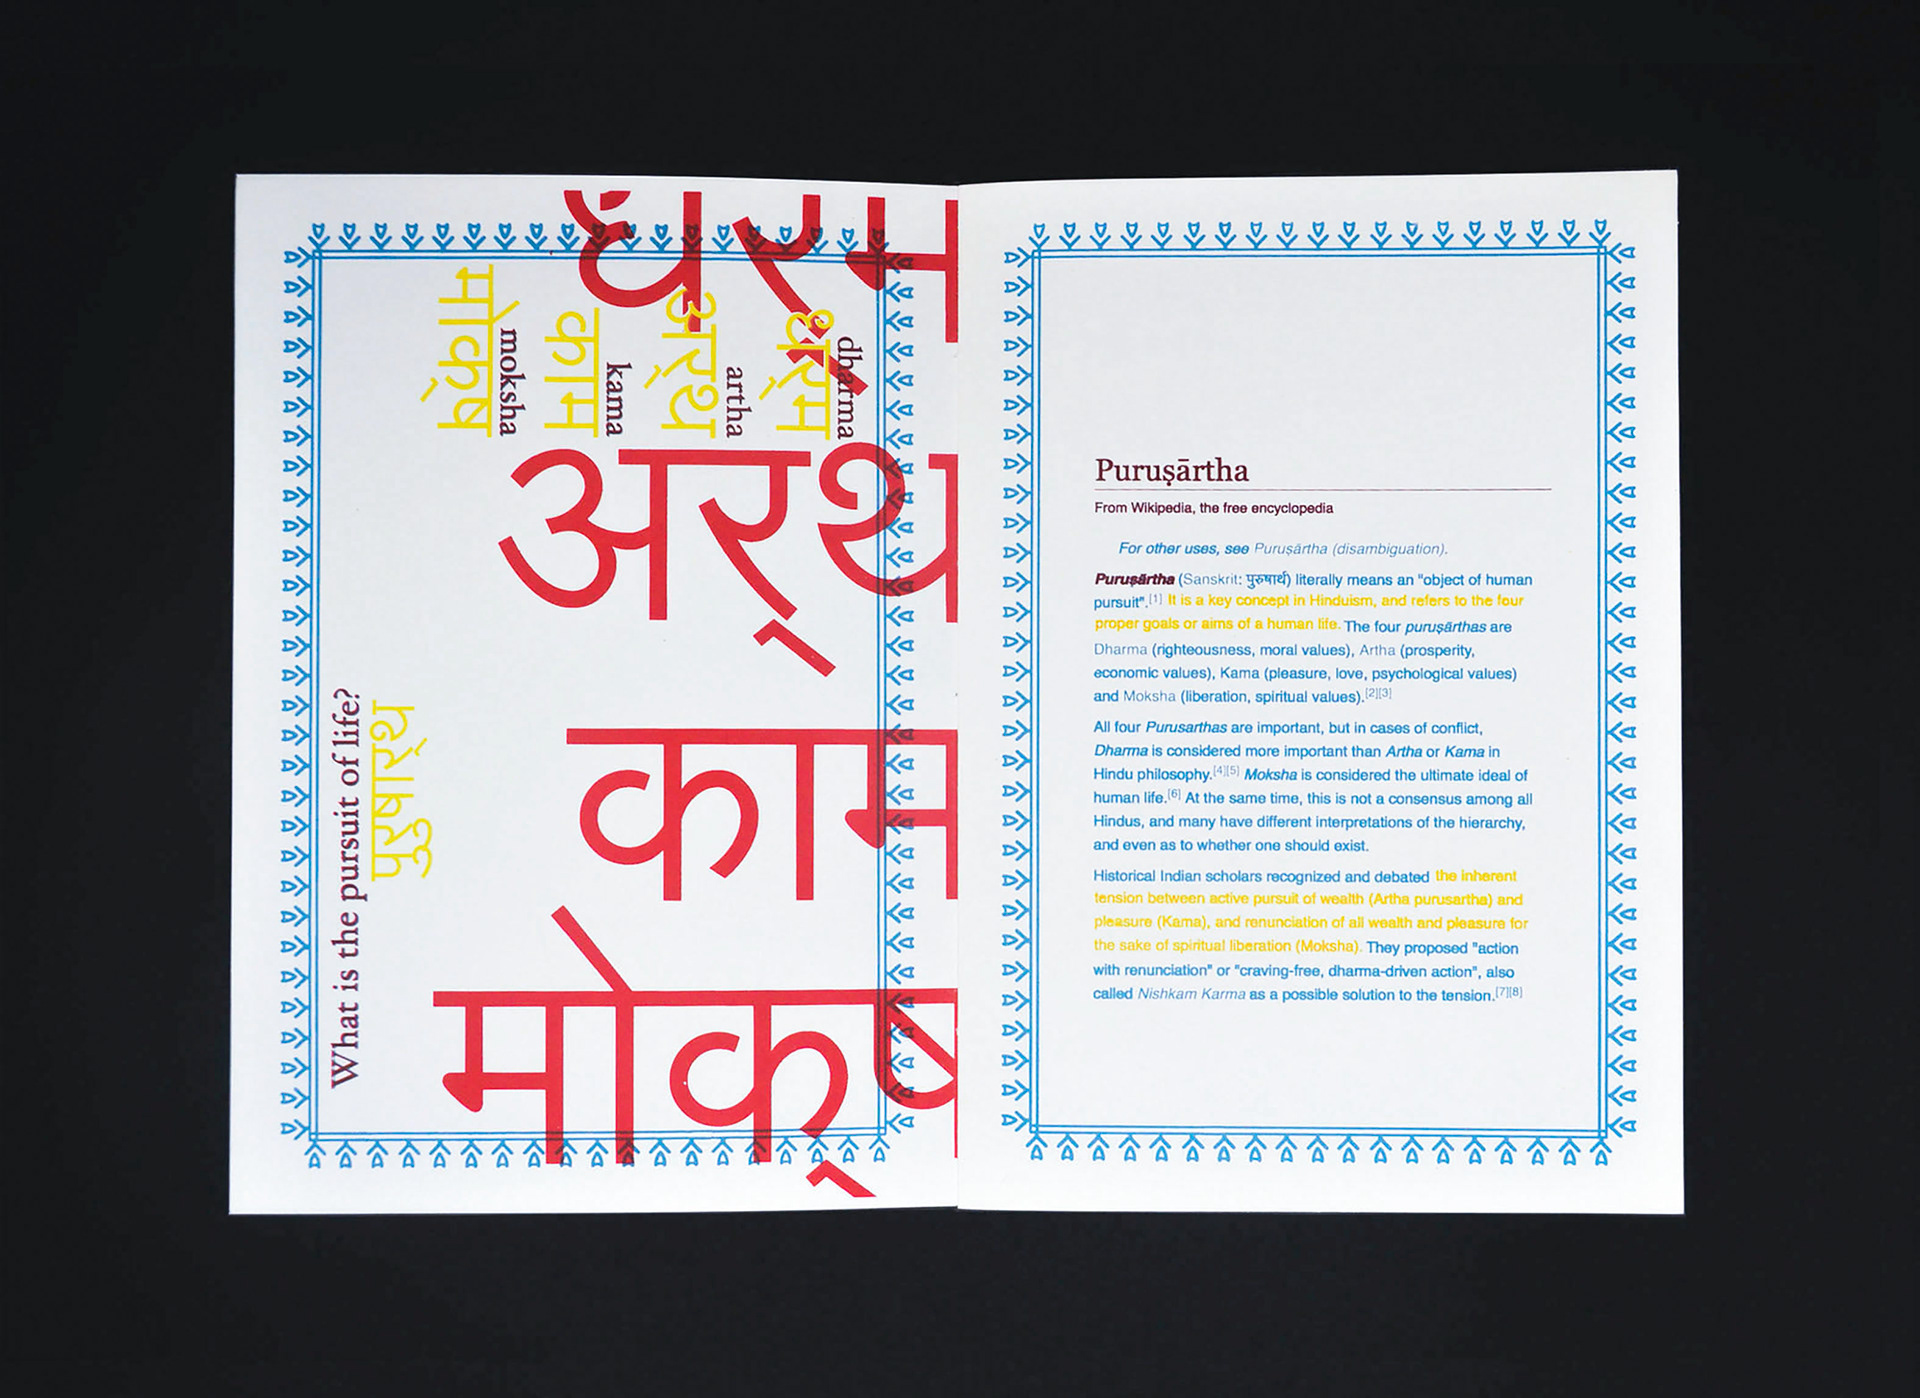 धर्‌म
अर्‌थ
काम
मोक्‌ष
What is the pursuit of life?
पुरुषार्‌थ
मोक्‌ष
moksha
काम
kama
अर्‌थ
artha
धर्‌म
dharma
Puruṣārtha
From Wikipedia, the free encyclopedia
For other uses, see Puruṣārtha (disambiguation).
Puruṣārtha (Sanskrit: पुरुषार्थ) literally means an "object of human
pursuit".[1] It is a key concept in Hinduism, and refers to the four
proper goals or aims of a human life. The four puruṣārthas are
Dharma (righteousness, moral values), Artha (prosperity,
economic values), Kama (pleasure, love, psychological values)
and Moksha (liberation, spiritual values).[2][3]
All four Purusarthas are important, but in cases of conflict,
Dharma is considered more important than Artha or Kama in
Hindu philosophy.[4][5] Moksha is considered the ultimate ideal of
human life.[6] At the same time, this is not a consensus among all
Hindus, and many have different interpretations of the hierarchy,
and even as to whether one should exist.
Historical Indian scholars recognized and debated the inherent
tension between active pursuit of wealth (Artha purusartha) and
pleasure (Kama), and renunciation of all wealth and pleasure for
the sake of spiritual liberation (Moksha). They proposed "action
with renunciation" or "craving-free, dharma-driven action", also
called Nishkam Karma as a possible solution to the tension.[7][8]